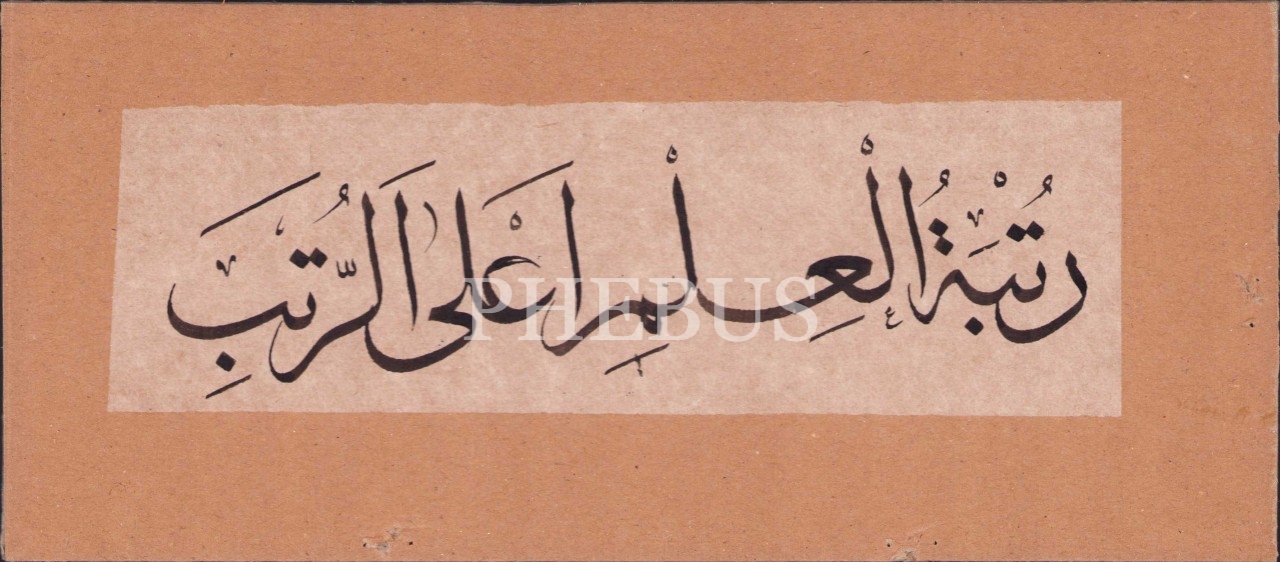 رُتْبَةُ الْعِلْمِ اَعْلَى الرُّتَبِ
PHEBUS